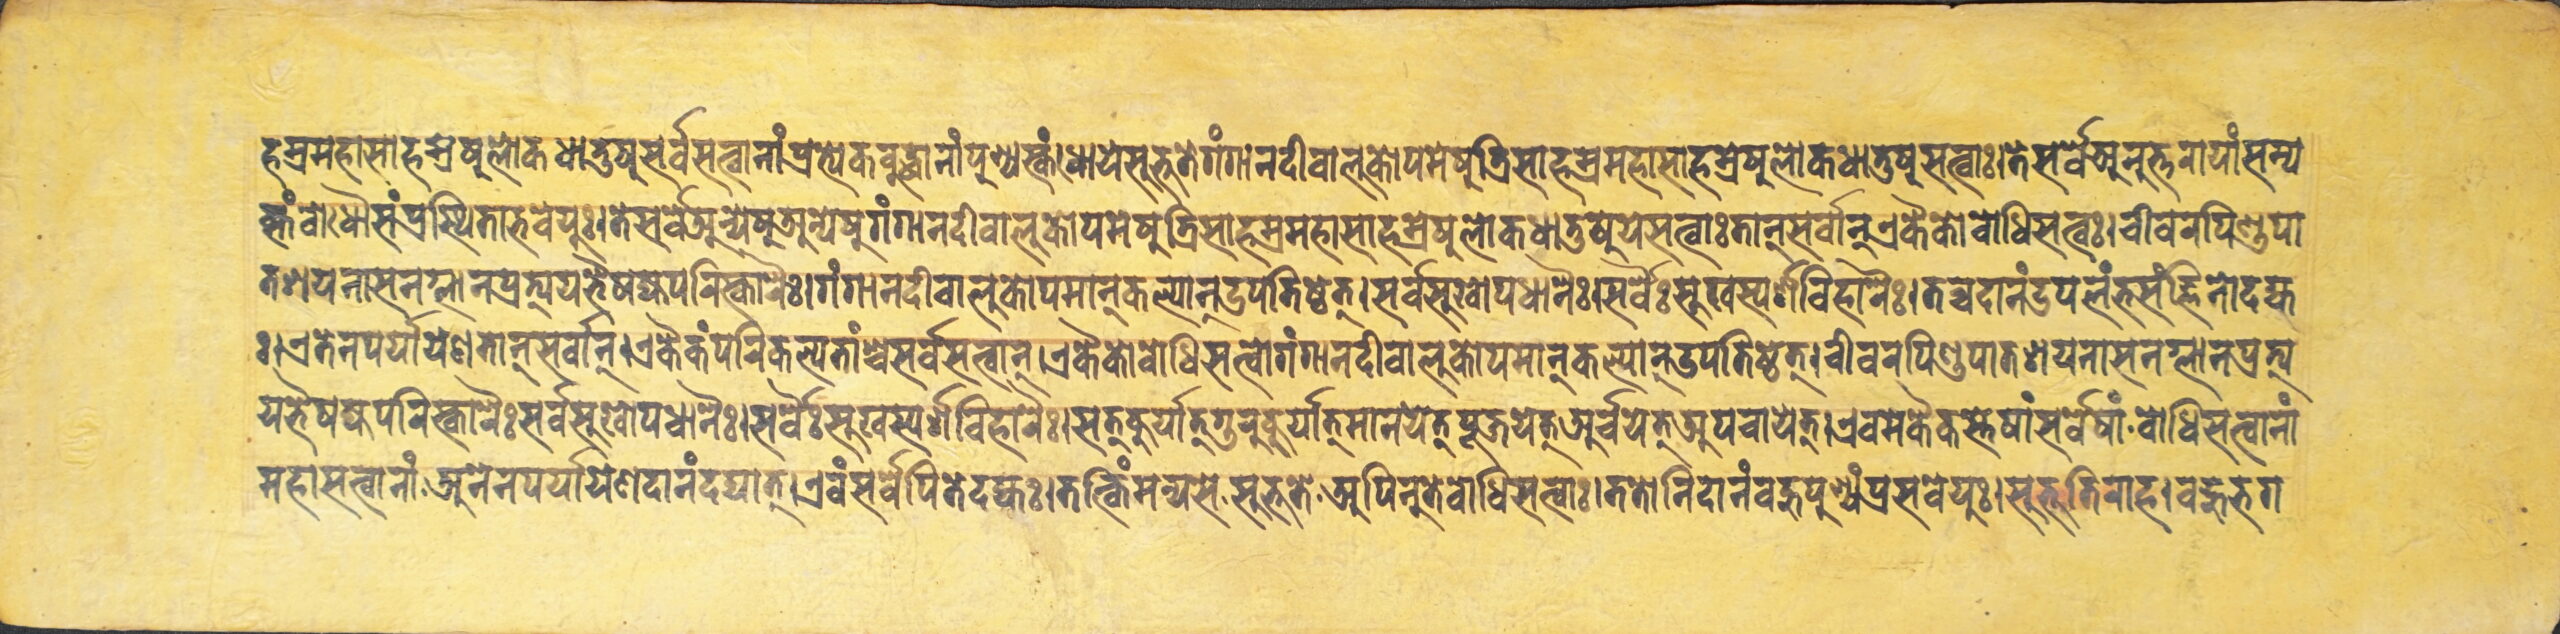 हस्रमहासाहस्रेषु लोकधातुषु सर्वसत्वानां प्रत्येकबुद्धानां पुण्यस्कंधा ये सुभूते गंगानदीवालुकोपमेषु त्रिसाहस्रमहासाहस्रेषु लोकधातुषु सत्वाः। ते सर्वे अनुत्तरायां सम्य
क्सं बोधौ संप्रस्थिता भवेयुः। ते सर्वे अन्येषु अन्येषु गंगानदीवालुकोपमेषु त्रिसाहस्रमहासाहस्रेषु लोकधातुषु ये सत्वाः तान् सर्वान् एकैको बोधिसत्वः। चीवरपिण्डपा
तशयनासनग्लानप्रत्ययभैषज्यपरिस्कारैः। गंगानदीवालुकोपमान् कल्पान् उपतिष्ठेत्। सर्वसुखोपधानैः। सर्वैः सुखस्पर्शविहारैः। तच्च दानं उपलंभसंज्ञिनो दद्य
ः। एतेन पर्यायेण तान् सर्वान्। एकैकं परिकल्प्य तांश्च सर्वसत्वान्। एकैको बोधिसत्वो गंगानदीवालुकोपमान् कल्पान् उपतिष्ठेत्। चीवरपिण्डपातशयनासनग्लानप्रत्य
यभैषज्यपरिस्कारैः सर्वसुखोपधानैः। सर्वैः सुखस्पर्शविहारैः। सत्कुर्यात् गुरुकुर्यात् मानयेत् पूजयेत् अर्चयेत् अपचायेत्। एवमेकैकस्तेषां सर्वेषां बोधिसत्वानां
महासत्वानां अनेन पर्यायेण दानं दद्यात्। एवं सर्वेपि ते दद्युः। तत्किं मन्यसे सुभूते अपि नु ते बोधिसत्वाः। ततो निदानं बहु पुण्यं प्रसवेयुः। सुभूतिराह। बहु भग